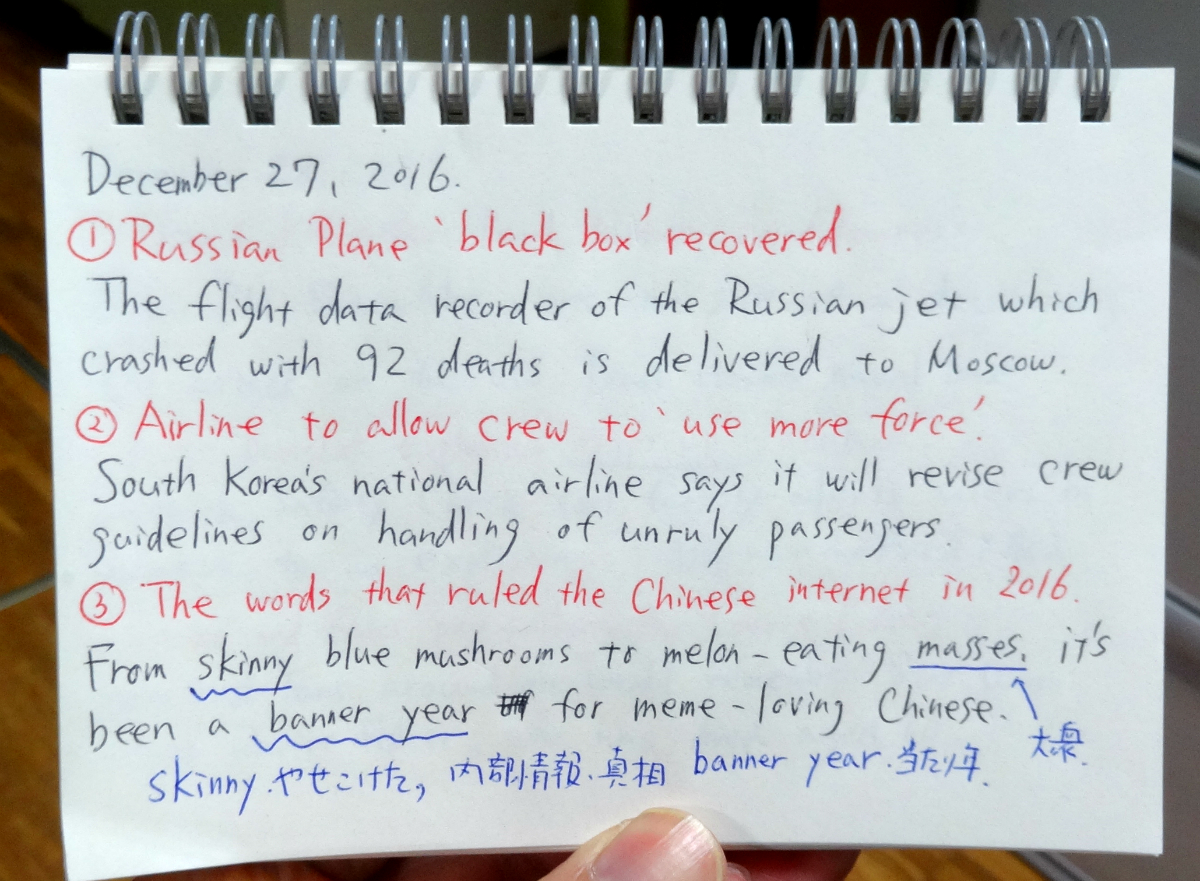 December 27, 2016.
① Russian Plane 'black box' recovered.
The flight data recorder of the Russian jet which
crashed with 92 deaths is delivered to Moscow.
② Airline to allow crew to 'use more force'.
South Korea's national airline says it will revise crew
guidelines on handling of unruly passengers.
③ The words that ruled the Chinese internet in 2016.
From skinny blue mushrooms to melon-eating masses, it's
been a banner year for meme-loving Chinese.
大衆.
skinny.やせこけた, 内部情報.真相 banner year.当たり年.